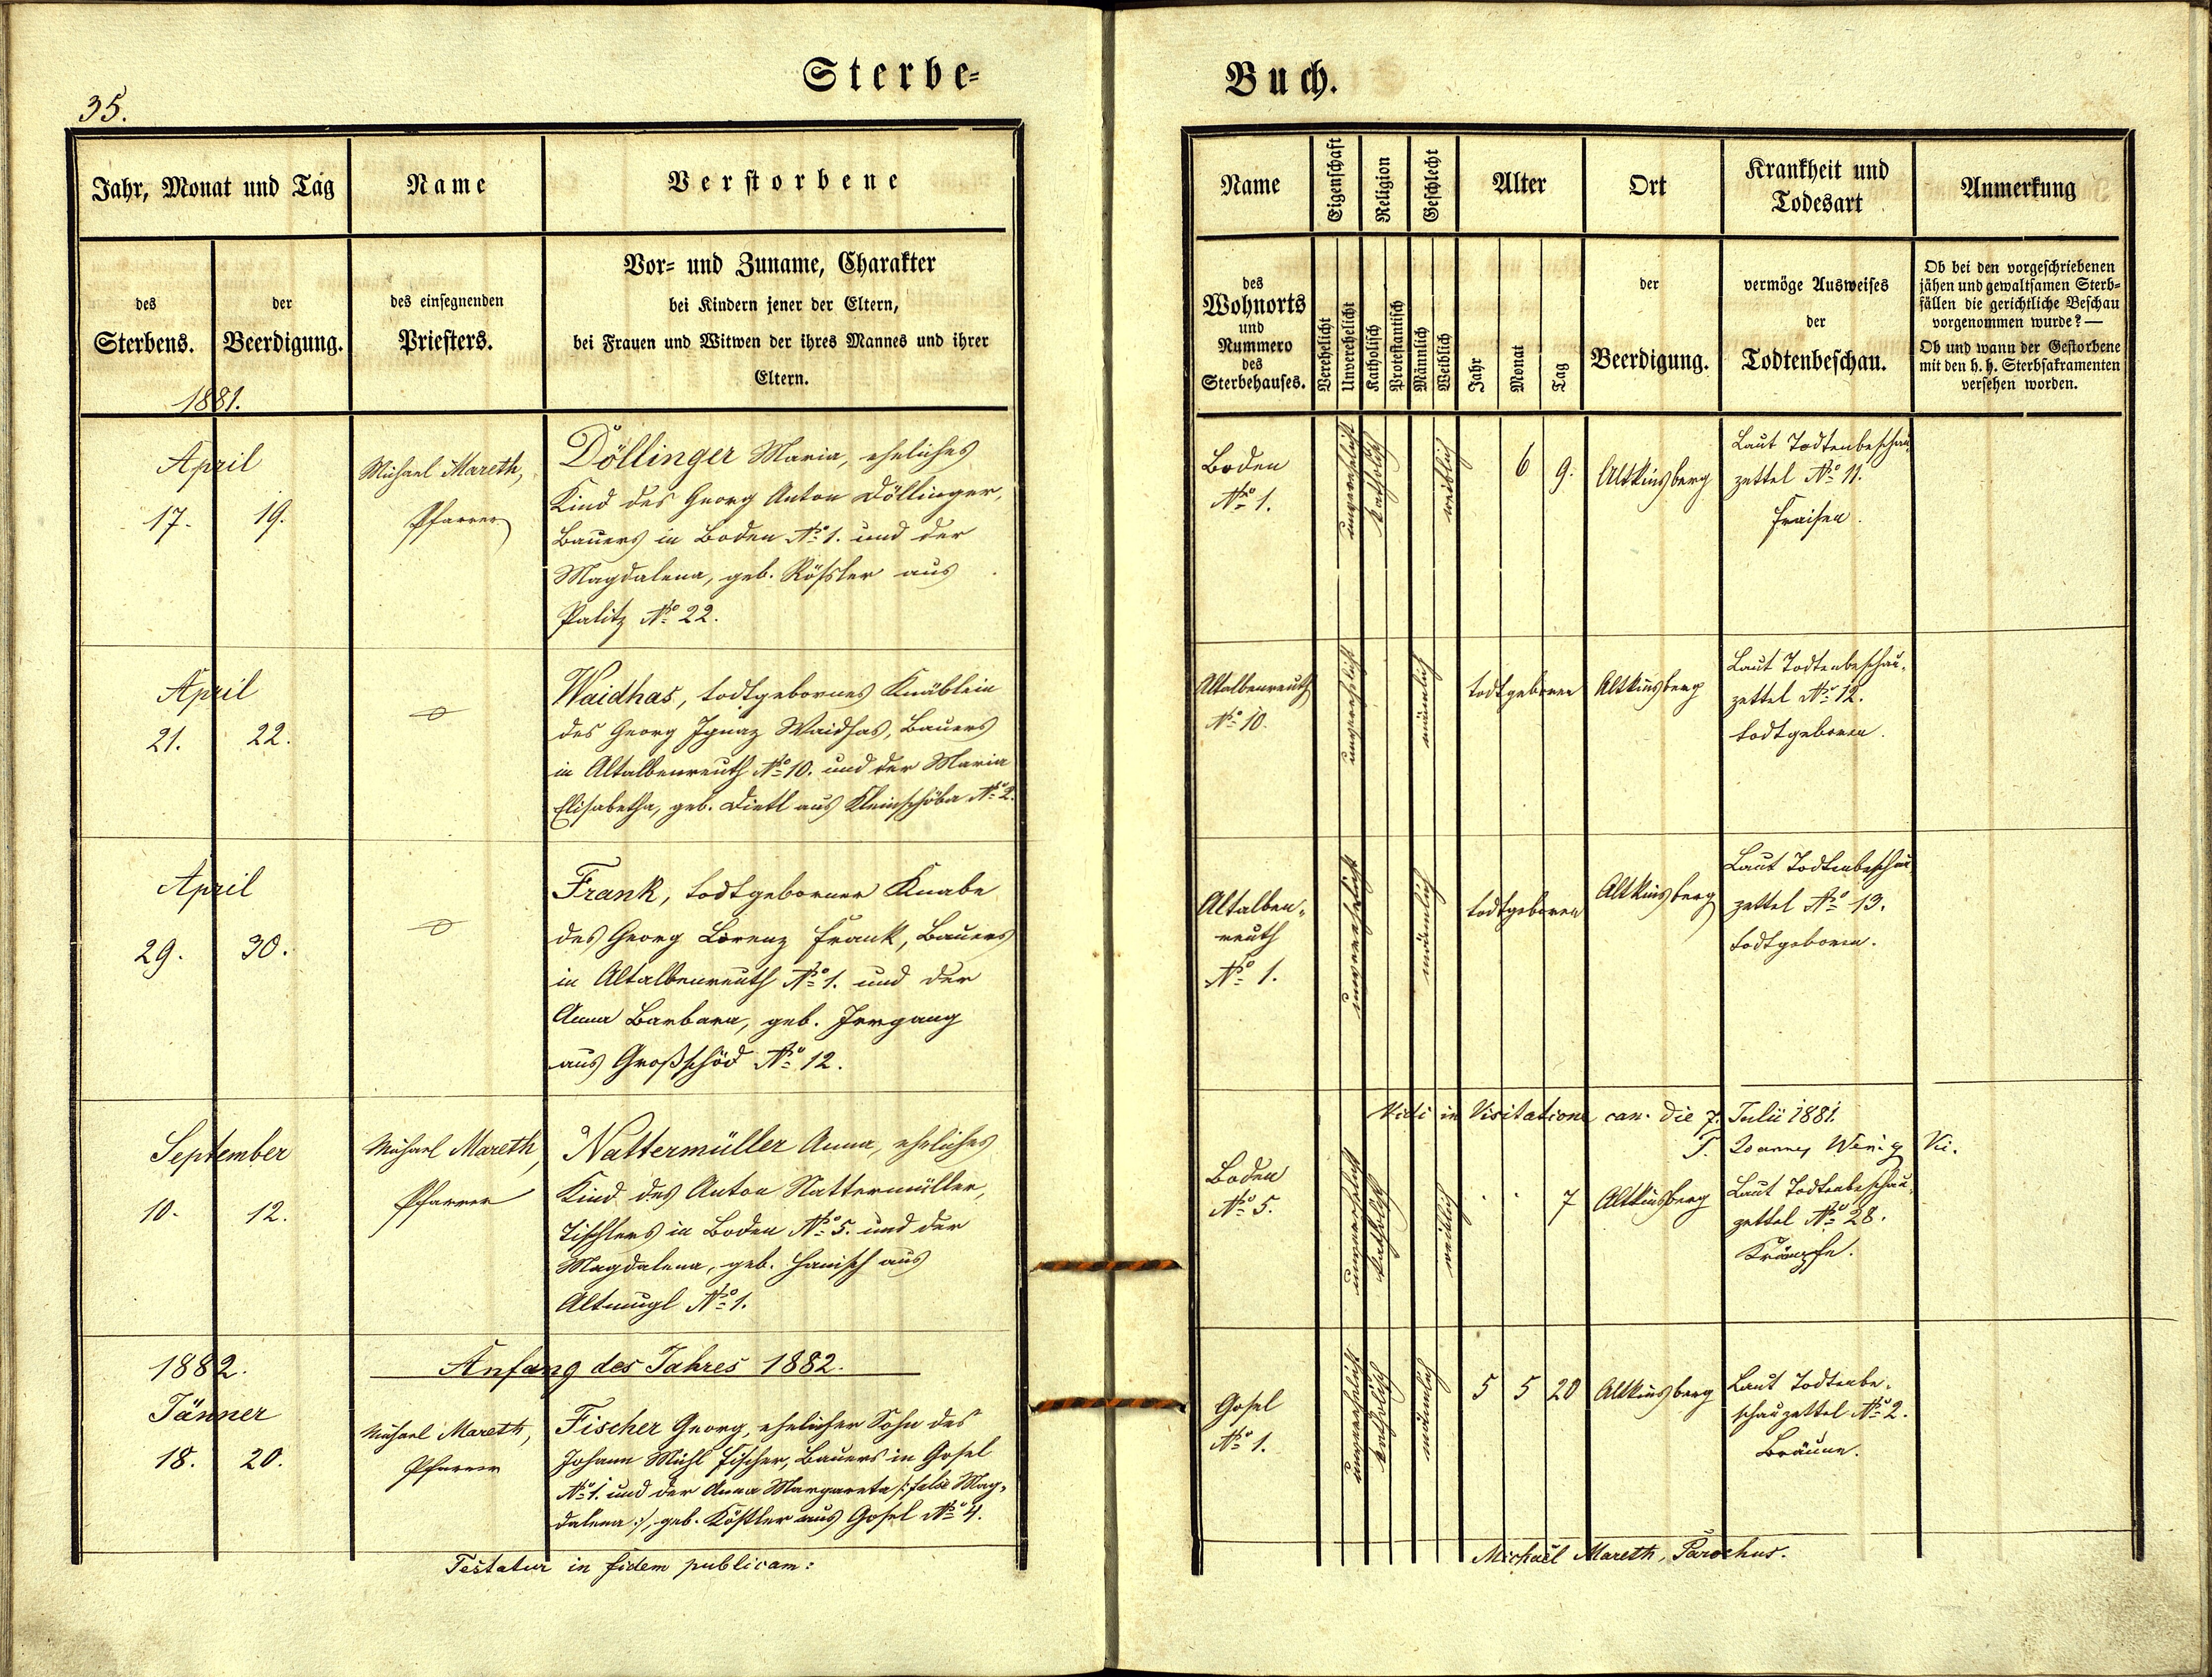 Sterbe-
35.
Jahr, Monat und Tag
Name
Verstorbene
des
Sterbens.
der
Beerdigung.
des einsegnenden
Priesters.
Vor- und Zuname, Charakter
bei Kindern jener der Eltern,
bei Frauen und Witwen der ihres Mannes und ihrer
Eltern.
1881.
April
17. 19.
Michael Mareth,
Pfarrer
Döllinger Maria, eheliches
Kind des Georg Anton Döllinger,
Bauers in Boden No 1. und der
Magdalena, geb. Rößler aus
Palitz No 22.
April
21. 22.
Waidhas, todtgebornes Knäblein
des Georg Ignaz Waidhas, Bauers
in Altalbenreuth No 10. und der Maria
Elisabetha, geb. Dietl aus Kleinschöba No 2.
April
29. 30.
Frank, todtgeborner Knabe
des Georg Lorenz Frank, Bauers
in Altalbenreuth No 1. und der
Anna Barbara, geb. Irrgang
aus Großschöd No 12.
September
10. 12.
Michael Mareth,
Pfarrer
Nattermüller Anna, eheliches
Kind des Anton Nattermüller,
Tischlers in Boden No 5. und der
Magdalena, geb. Hanisch aus
Altmugl No 1.
1882.
Anfang des Jahres 1882.
Jänner
18. 20.
Michael Mareth,
Pfarrer
Fischer Georg, ehelicher Sohn des
Johann Michl Fischer, Bauers in Gosel
No 1. und der Anna Margareta /: false Mag-
dalena :/, geb. Köstler aus Gosel No 4.
Testatur in fidem publicam:
Buch.
Name
Eigenschaft
Religion
Geschlecht
Alter
Ort
Krankheit und
Todesart
Anmerkung
des
Wohnorts
und
Nummero
des
Sterbehauses.
Verehelicht
Unverehelicht
Katholisch
Protestantisch
Männlich
Weiblich
Jahr
Monat
Tag
der
Beerdigung.
vermöge Ausweises
der
Todtenbeschau.
Ob bei den vorgeschriebenen
jähen und gewaltsamen Sterb-
fällen die gerichtliche Beschau
vorgenommen wurde? —
Ob und wann der Gestorbene
mit den h. h. Sterbsakramenten
versehen worden.
Boden
No 1.
unverehelicht
katholisch
weiblich
6 9.
Altkinsberg
Laut Todtenbeschau-
zettel No 11.
Fraisen.
Altalbenreuth
No 10.
unverehelicht
männlich
todtgeboren
Altkinsberg
Laut Todtenbeschau-
zettel No 12.
todtgeboren.
Altalben-
reuth
No 1.
unverehelicht
männlich
todtgeboren
Altkinsberg
Laut Todtenbeschau
zettel No 13.
todtgeboren.
Vidi in Visitatione can. die 7. Julii 1881.
Boden
No 5.
unverehelicht
katholisch
weiblich
7
Altkinsberg
Laut Todtenbeschau-
zettel No 28.
Krämpfe.
Gosel
No 1.
unverehelicht
katholisch
männlich
5 5 20
Altkinsberg
Laut Todtenbe-
schauzettel No 2.
Bräune.
Michaël Mareth, Parochus.